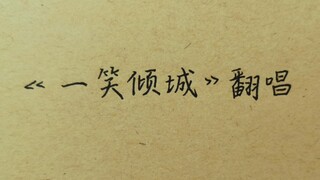 《一笑倾城》翻唱